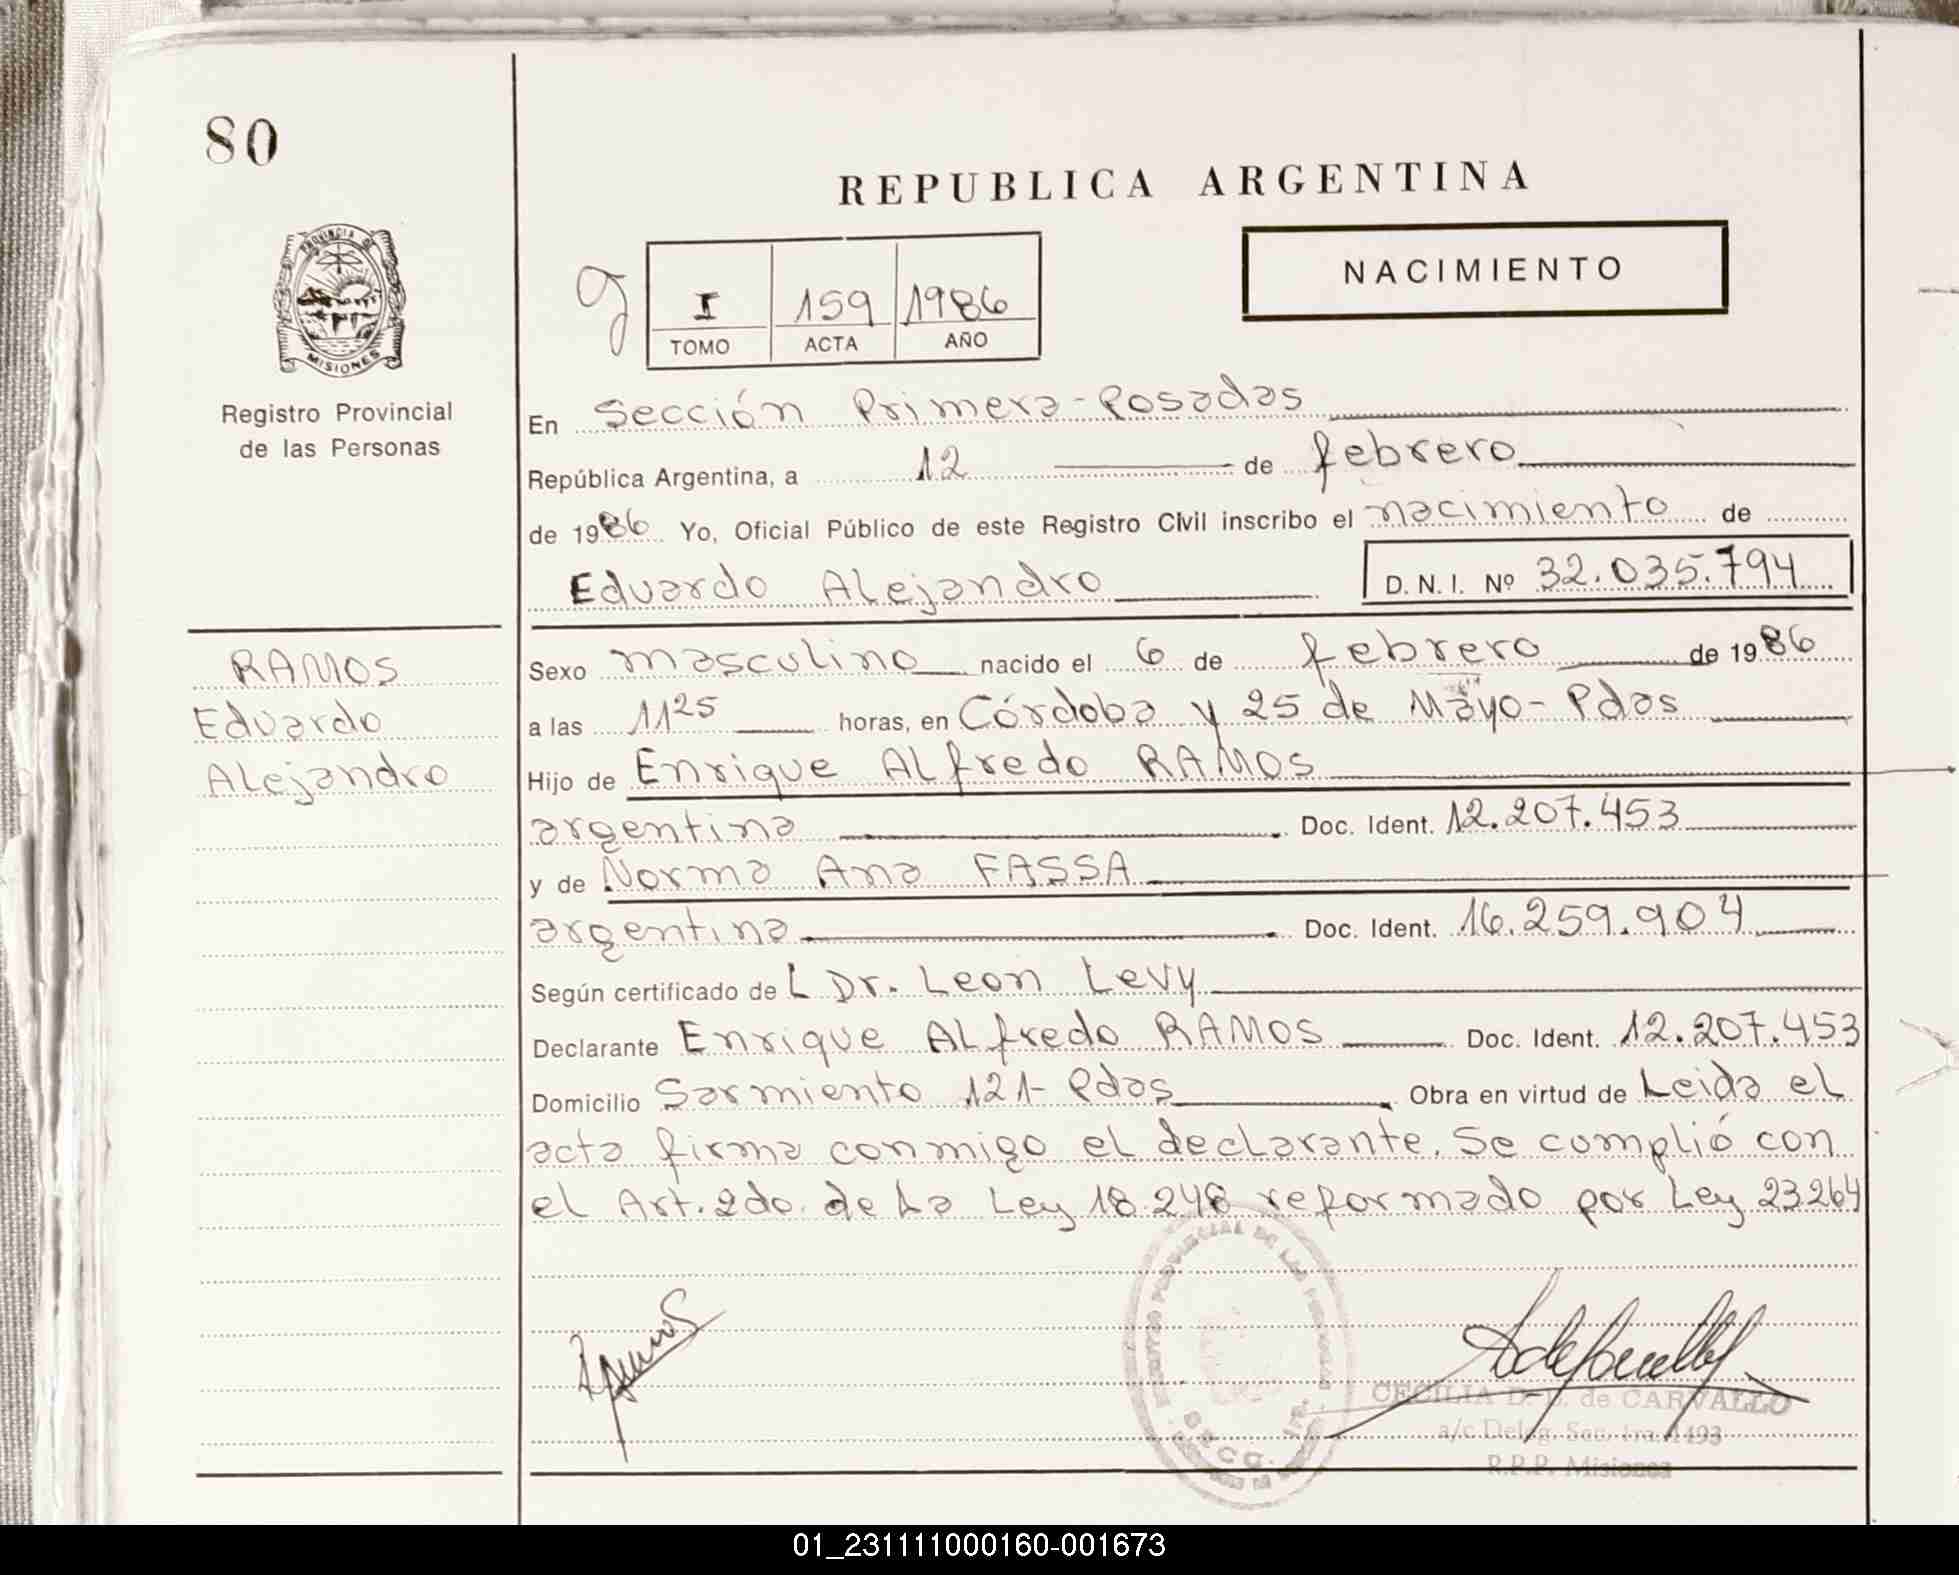 80
REPUBLICA ARGENTINA
PROVINCIA DE
MISIONES
Registro Provincial
de las Personas
NACIMIENTO
I 159 1986
TOMO ACTA AÑO
En Sección Primera-Posadas
República Argentina, a 12 de febrero
de 1986 Yo, Oficial Público de este Registro Civil inscribo el nacimiento de
Eduardo Alejandro D. N. I. Nº 32.035.794
RAMOS
Eduardo
Alejandro
Sexo masculino nacido el 6 de febrero de 1986
a las 11 25 horas, en Córdoba y 25 de Mayo- Pdas
Hijo de Enrique Alfredo RAMOS
argentina Doc. Ident. 12.207.453
y de Norma Ana FASSA
argentina Doc. Ident. 16.259.904
Según certificado de L Dr. Leon Levy
Declarante Enrique Alfredo RAMOS Doc. Ident. 12.207.453
Domicilio Sarmiento 121- Pdas Obra en virtud de Leida el
acta firma conmigo el declarante. Se cumplió con
el Art. 2do. de La Ley 18.248 reformado por Ley 23264
Ramos
CECILIA D. de CARVALLO
a/c Deleg. Sec. 1ra. 1493
R.P.P. Misiones
01_231111000160-001673